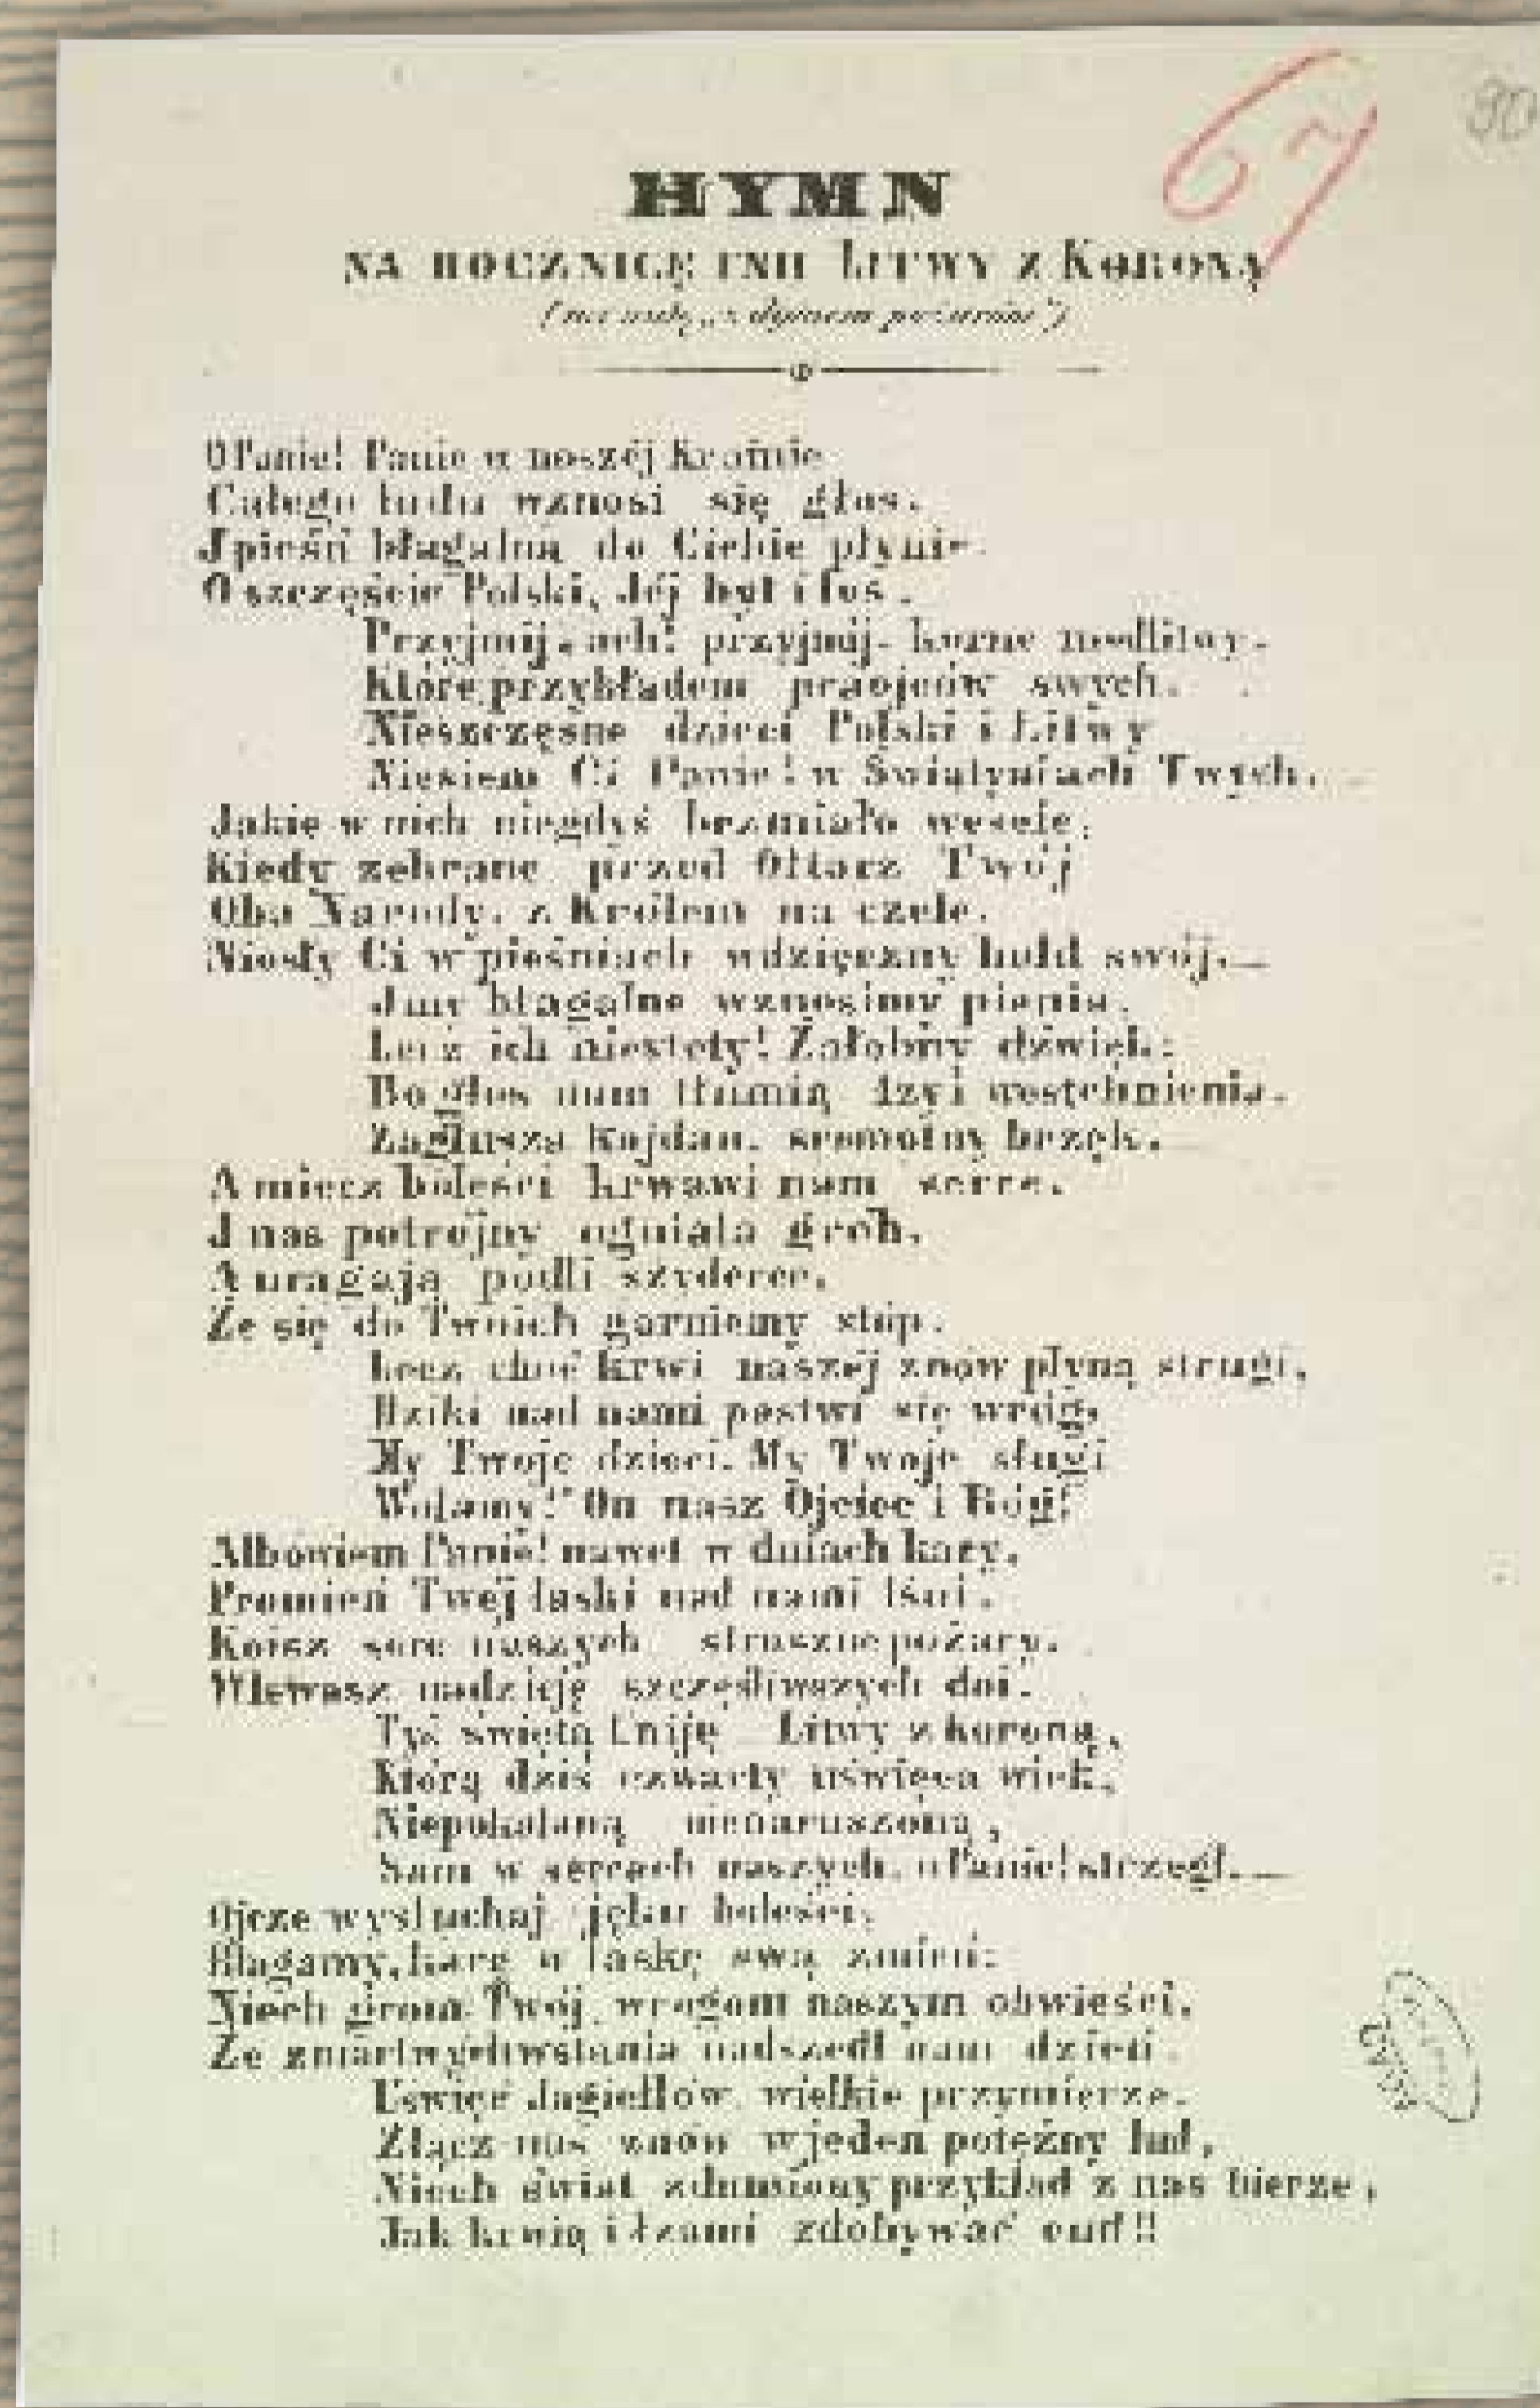 67
90
HYMN
NA ROCZNICĘ UNII LITWY Z KORONĄ
(na nutę „z dymem pożarów")
O Panie! Panie w naszéj Krainie
Całego ludu wznosi się głos.
J pieśń błagalna do Ciebie płynie
O szczęście Polski, Jéj byt i los.
Przyjmij, ach! przyjmij, korne modlitwy.
Które przykładem praojców swych.
Nieszczęsne dzieci Polski i Litwy
Niesiem Ci Panie! w Świątyniach Twych.
Jakie w nich niegdyś brzmiało wesele,
Kiedy zebrane przed Ołtarz Twój
Oba Narody, z Królem na czele.
Niosły Ci w pieśniach wdzięczny hołd swój.—
J my błagalne wznosimy pienia.
Lecz ich niestety! Żałobny dźwięk:
Bo głos nam tłumią łzy i westchnienia.
Zagłusza Kajdan, sromotny brzęk.
A miecz boleści krwawi nam serce.
J nas potrójny ogniata grób.
A urągają podli szyderce.
Że się do Twoich garniemy stóp.
Lecz choć Krwi naszéj znów płyną strugi,
Dziki nad nami pastwi się wróg,
My Twoje dzieci, My Twoje sługi
Wołamy!" On nasz Ojciec i Bóg!"
Albowiem Panie! nawet w dniach kary.
Promień Twéj łaski nad nami lśni.
Koisz serc naszych straszne pożary.
Wlewasz nadzieję szczęśliwszych dni.
Tyś świętą Uniję Litwy z koroną,
Którą dziś czwarty uświęca wiek,
Niepokalaną nienaruszoną,
Sam w sercach naszych, o Panie! strzegł.—
Ojcze wysłuchaj jęku boleści,
Błagamy, karę w łaskę swą zmień:
Niech grom Twój wrogom naszym obwieści,
Że zmartwychwstania nadszedł nam dzień.
Uświęć Jagiełłów wielkie przymierze.
Złącz nas znów w jeden potężny lud,
Niech świat zdumiony przykład z nas bierze,
Jak krwią i łzami zdobywać cud!!